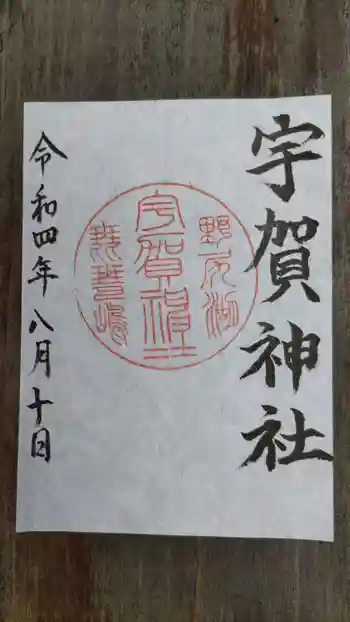 宇賀神社
野尻湖
宇賀神社
琵琶嶋
令和四年八月十日